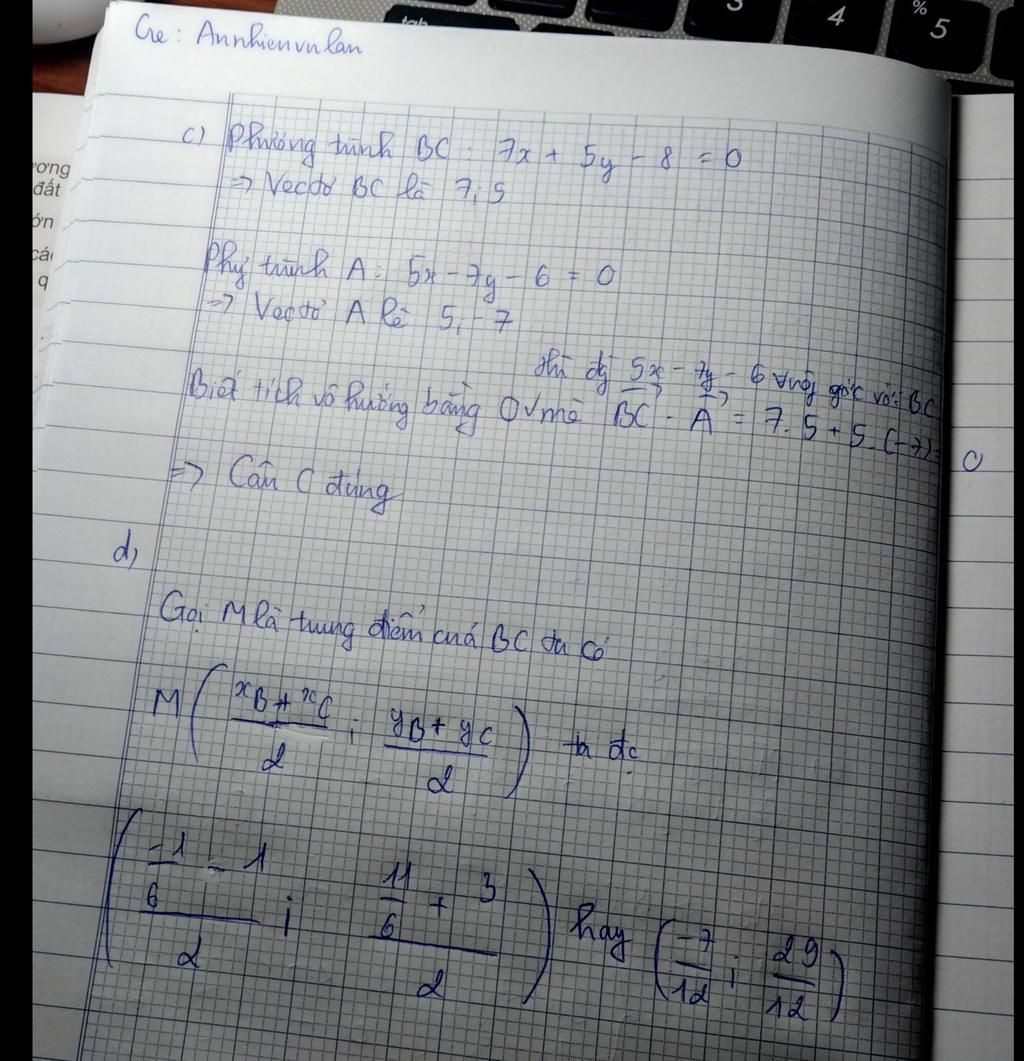 Cre: Annhienvnlan
3
4
%
5
tab
ương
đất
ớn
các
q
c) Phương trình BC: 7x + 5y - 8 = 0
=> Vectơ BC là 7; 5
Phg trình A: 5x - 7y - 6 = 0
=> Vectơ A là 5; -7
thì đg 5x - 7y - 6 vuông góc với BC
Biết tích vô hướng bằng 0 mà BC . A = 7.5 + 5.(-7) = 0
=> Câu C đúng
d,
Gọi M là trung điểm của BC ta có
M ( (xB + xC)/2 ; (yB + yC)/2 ) ta đc
( (-1/6 - 1)/2 ; (11/6 + 3)/2 ) hay ( -7/12 ; 29/12 )